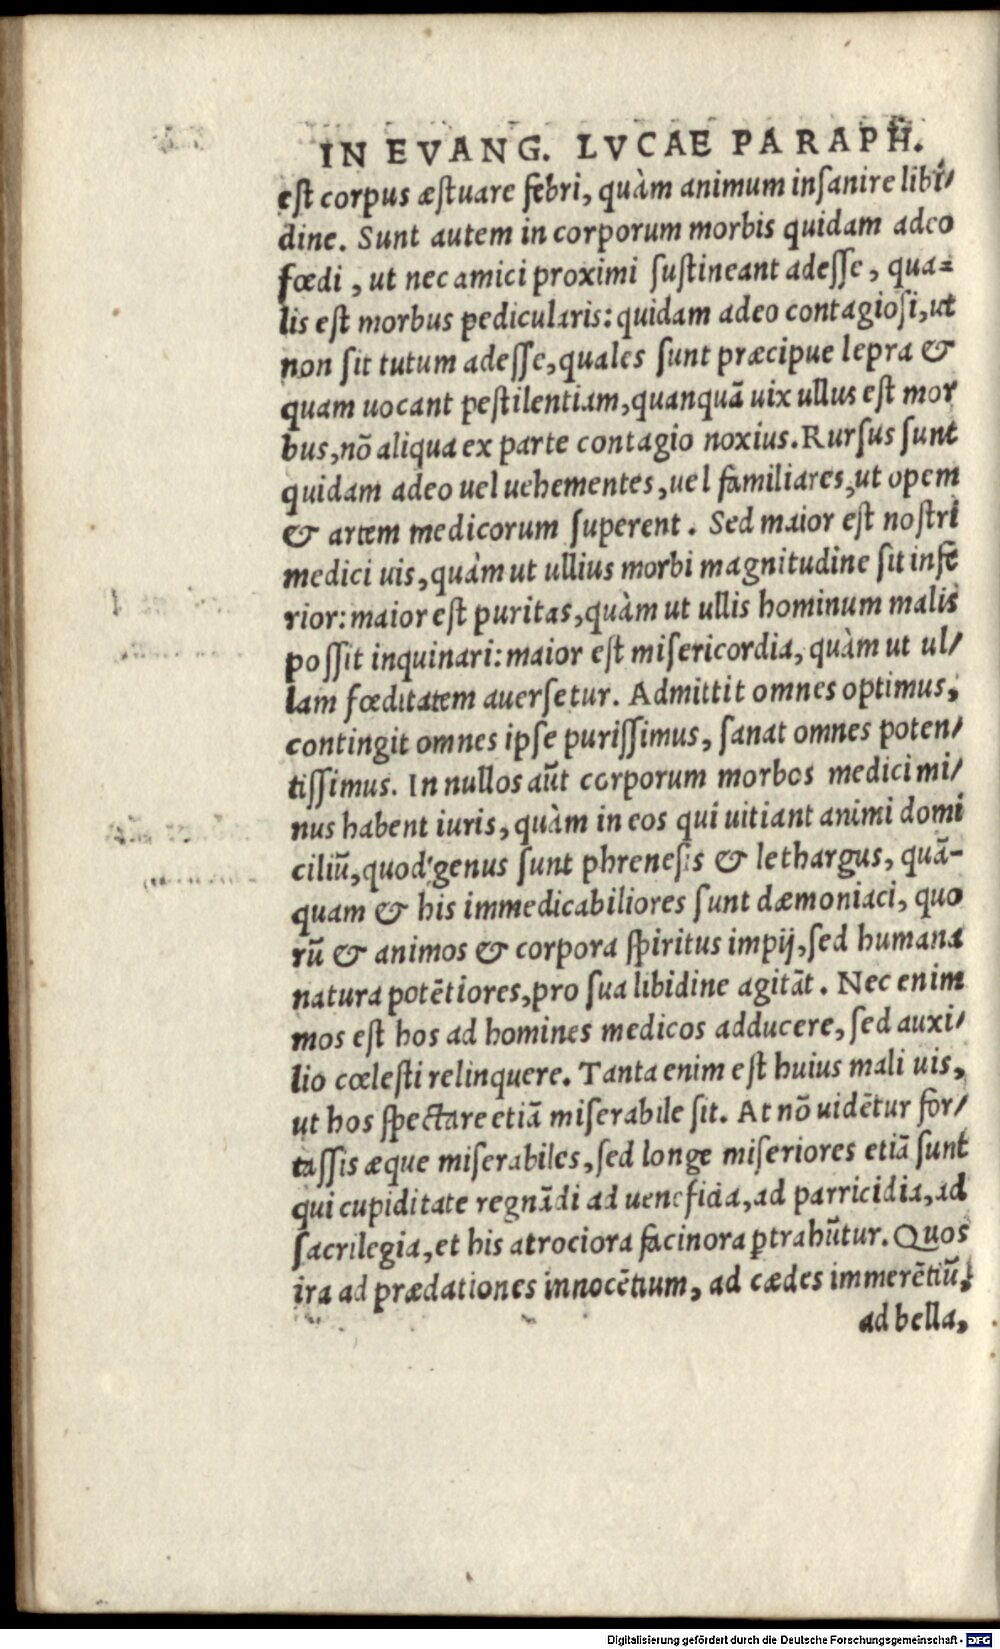 IN EVANG. LVCAE PARAPH.
est corpus æstuare febri, quàm animum insanire libi/
dine. Sunt autem in corporum morbis quidam adeo
fœdi, ut nec amici proximi sustineant adesse, qua=
lis est morbus pedicularis: quidam adeo contagiosi, ut
non sit tutum adesse, quales sunt præcipue lepra &
quam uocant pestilentiam, quanquã uix ullus est mor
bus, nõ aliqua ex parte contagio noxius. Rursus sunt
quidam adeo uel uehementes, uel familiares, ut opem
& artem medicorum superent. Sed maior est nostri
medici uis, quàm ut ullius morbi magnitudine sit infe
rior: maior est puritas, quàm ut ullis hominum malis
possit inquinari: maior est misericordia, quàm ut ul/
lam fœditatem auersetur. Admittit omnes optimus,
contingit omnes ipse purissimus, sanat omnes poten/
tissimus. In nullos aũt corporum morbos medici mi/
nus habent iuris, quàm in eos qui uitiant animi domi
ciliũ, quod genus sunt phrenesis & lethargus, quã-
quam & his immedicabiliores sunt dæmoniaci, quo
rũ & animos & corpora spiritus impij, sed humana
natura potẽtiores, pro sua libidine agitãt. Nec enim
mos est hos ad homines medicos adducere, sed auxi/
lio cœlesti relinquere. Tanta enim est huius mali uis,
ut hos spectare etiã miserabile sit. At nõ uidẽtur for/
tassis æque miserabiles, sed longe miseriores etiã sunt
qui cupiditate regnãdi ad ueneficia, ad parricidia, ad
sacrilegia, et his atrociora facinora ꝑtrahũtur. Quos
ira ad prædationes innocẽtium, ad cædes immerẽtiũ,
ad bella,
Digitalisierung gefördert durch die Deutsche Forschungsgemeinschaft - DFG